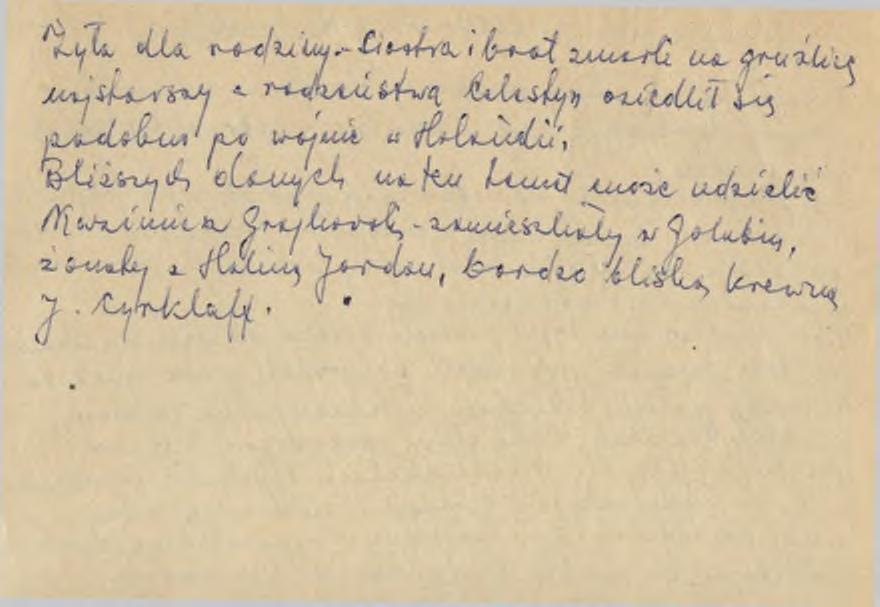 Żyła dla rodziny. - Siostra i brat zmarli na gruźlicę
najstarszy z rodzeństwa Celestyn osiedlił się
podobno po wojnie w Holandii.
Bliższych danych na ten temat może udzielić
Kazimierz Grajkowski - zamieszkały w Golubiu,
żonaty z Haliną Jordan, bardzo bliską krewną
J. Cyrklaff.